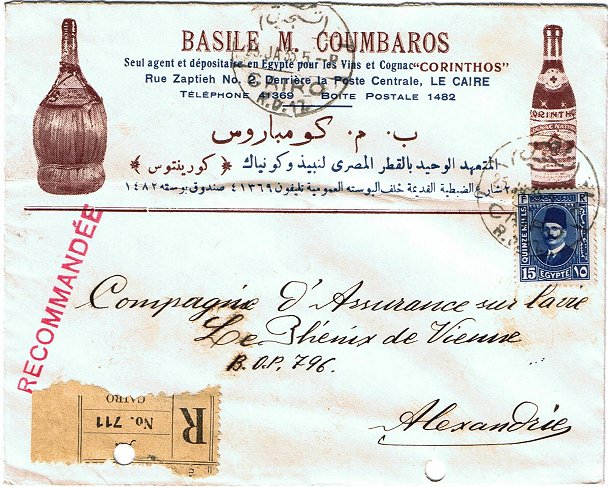 BASILE M. COUMBAROS
Seul agent et dépositaire en Egypte pour les Vins et Cognac "CORINTHOS"
Rue Zaptieh No. Derrière la Poste Centrale, LE CAIRE
TÉLÉPHONE 41369 BOITE POSTALE 1482
ب. م. كومباروس
المتعهد الوحيد بالقطر المصرى لنبيذ وكونياك « كورينتوس »
شارع الضبطية القديمة خلف البوسته العمومية تليفون ٤١٣٦٩ صندوق بوسته ١٤٨٢
CORINTHOS
CAIRO
R.D.12
QUINZE MILLS
15 EGYPTE ١٥
RECOMMANDÉE
Compagnie d'Assurance sur la vie
Le Phénix de Vienne
B.O.P. 796.
Alexandrie
R
CAIRO
No. 711